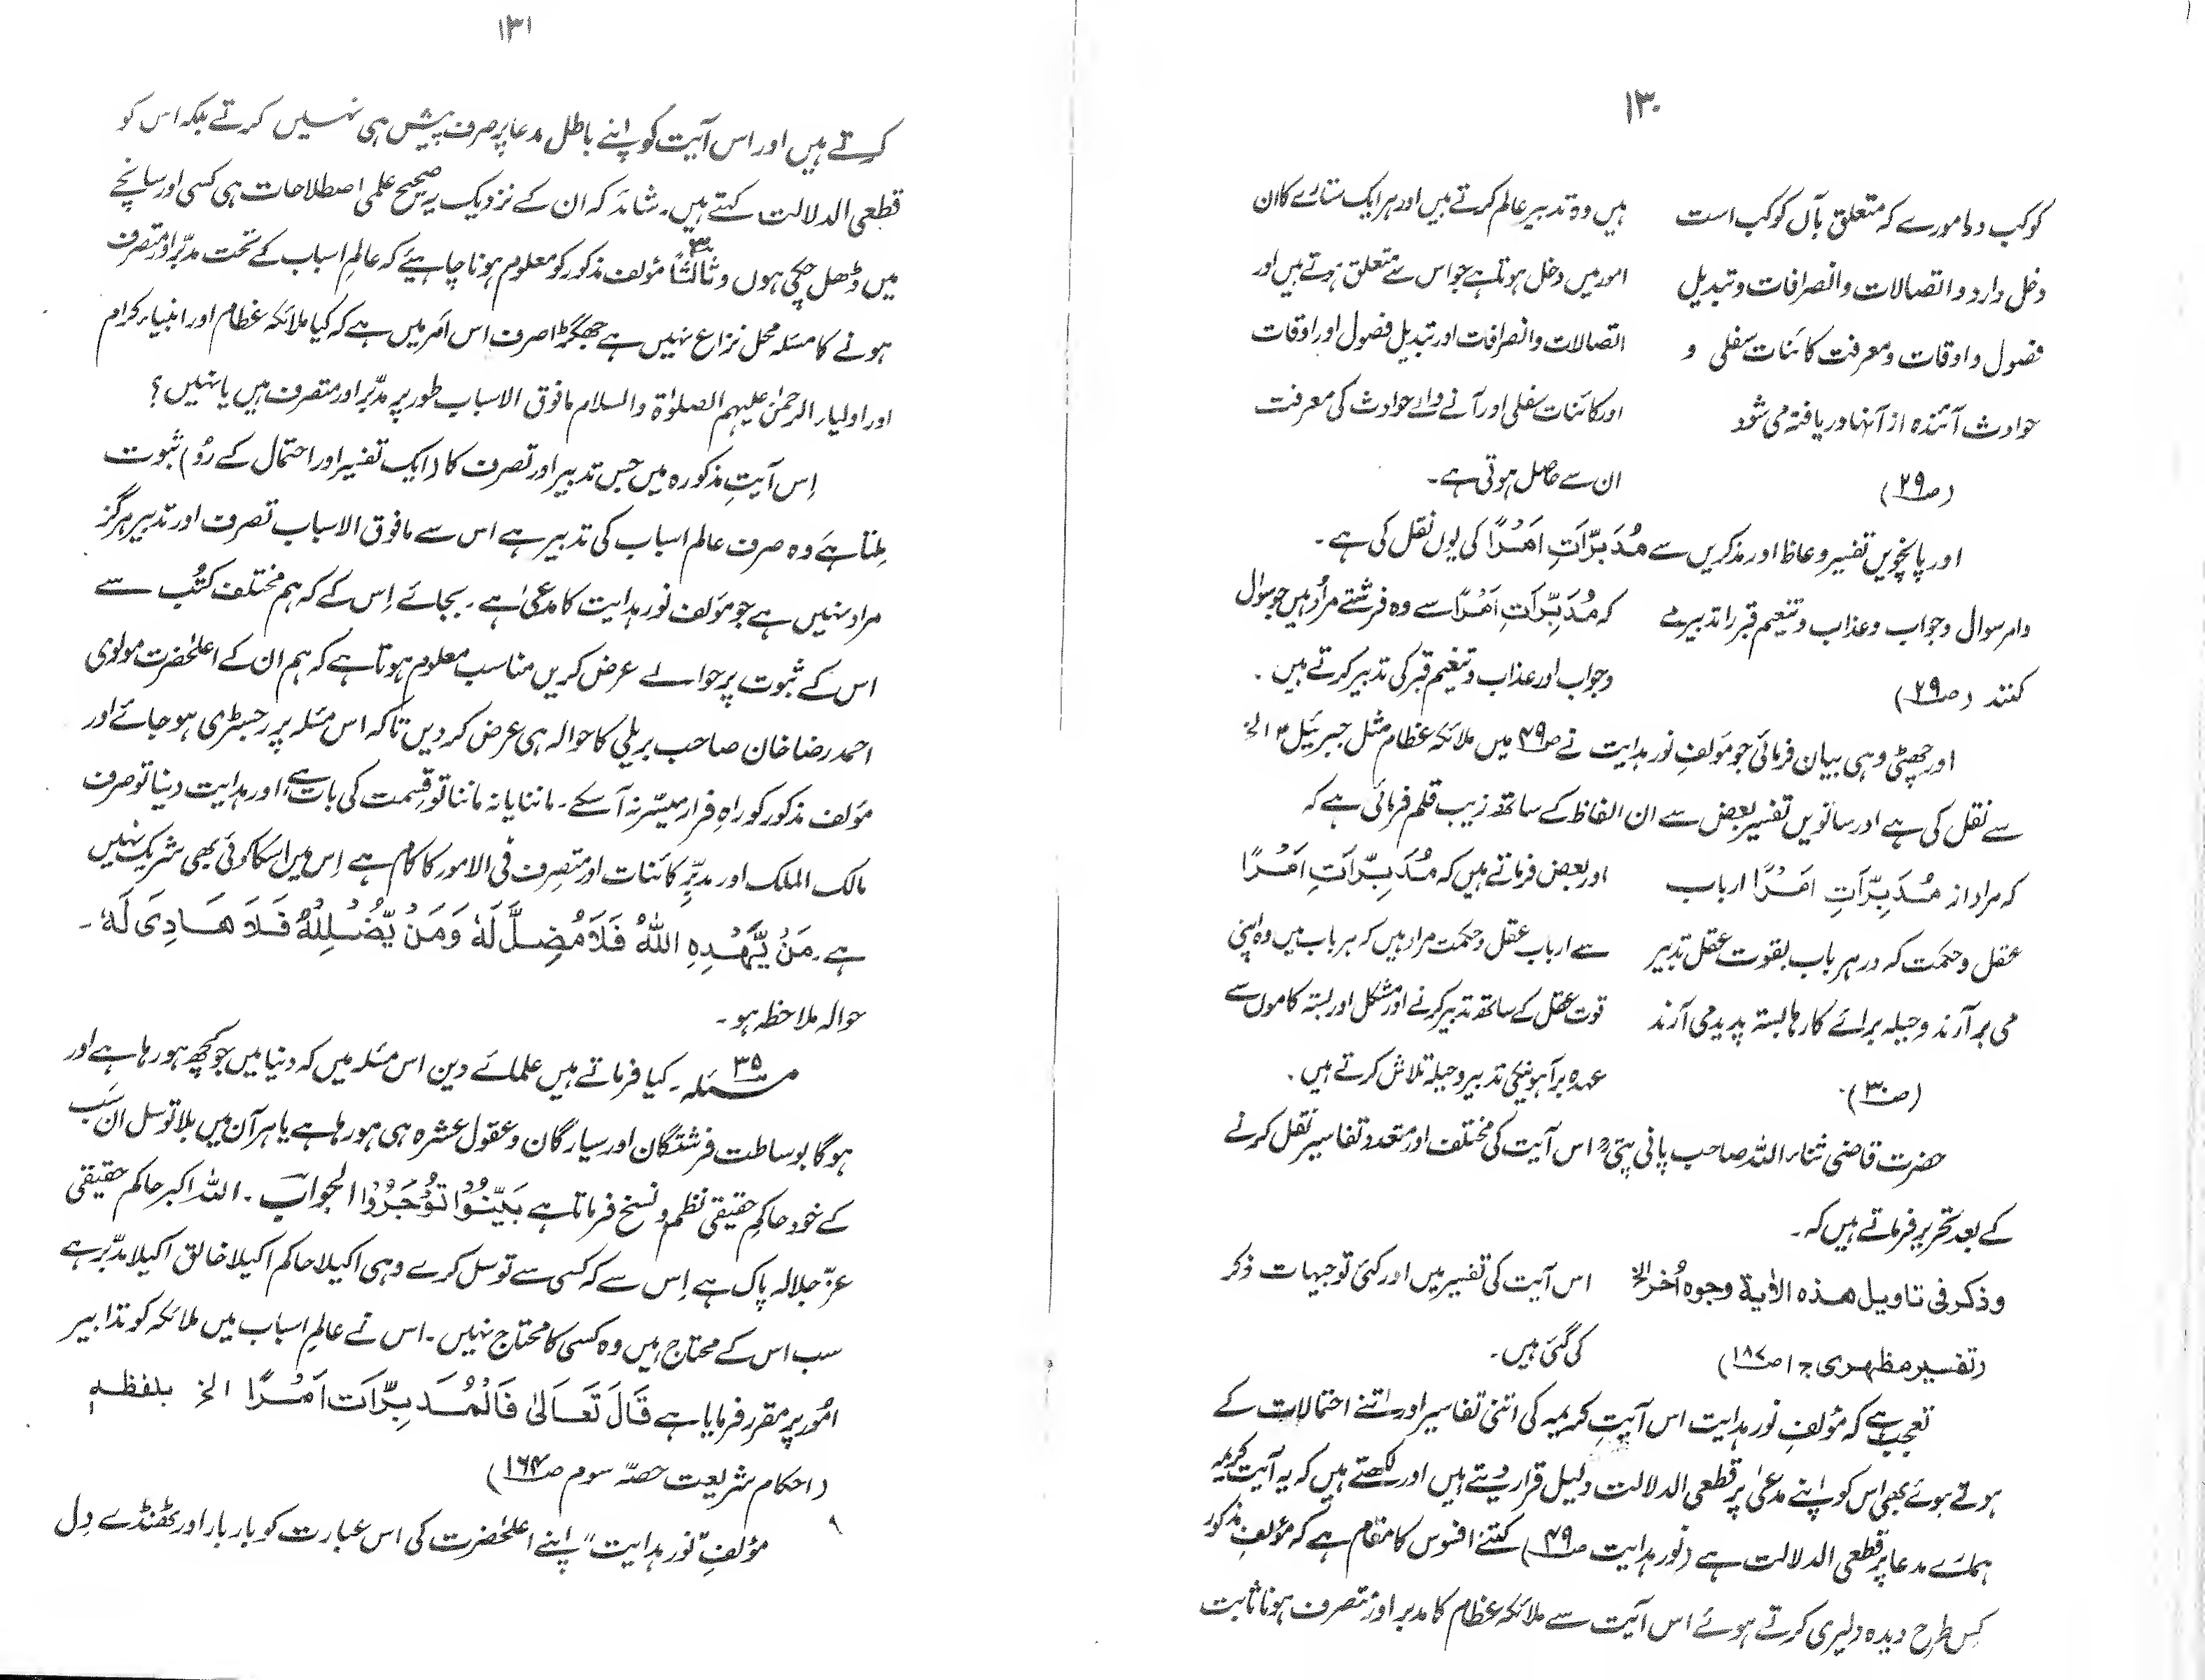 ۱۳۰
کوکب و باموریکہ متعلق بآں کوکب است
دخل دارد و اتصالات و انصرافات و تبدیل
فصول و اوقات و معرفت کائنات سفلی و
حوادث آئندہ از آنہا دریافتہ می شود
(ص۲۹)
ہیں وہ تدبیر عالم کرتے ہیں اور ہر ایک ستارے کا ان
امور میں دخل ہوتا ہے جو اس سے متعلق ہوتے ہیں اور
اتصالات و انصرافات اور تبدیل فصول اور اوقات
اور کائنات سفلی اور آنے والے حوادث کی معرفت
ان سے حاصل ہوتی ہے۔
اور پانچویں تفسیر وعاظ اور مذکریں سے مُدَبِّرَاتِ اَمْرًا کی یوں نقل کی ہے۔
دامر سوال و جواب و عذاب و تنعیم قبر را تدبیرے
کنند (ص۲۹)
کہ مُدَبِّرَاتِ اَمْرًا سے وہ فرشتے مراد ہیں جو سوال
و جواب اور عذاب و تنعیم قبر کی تدبیر کرتے ہیں۔
اور چھٹی وہی بیان فرمائی جو مؤلفِ نور ہدایت نے ص۴۹ میں ملائکہ عظام مثل جبرئیلؑ الخ
سے نقل کی ہے اور ساتویں تفسیر بعض سے ان الفاظ کے ساتھ زیب قلم فرمائی ہے کہ
کہ مراد از مُدَبِّرَاتِ اَمْرًا ارباب
عقل و حکمت کہ در ہر باب بقوت عقل تدبیر
می برآرند و حیلہ برائے کارہا بستہ پدید می آرند
(ص۳۰)
اور بعض فرماتے ہیں کہ مُدَبِّرَاتِ اَمْرًا
سے ارباب عقل و حکمت مراد ہیں کہ ہر باب میں وہ اپنی
قوت عقل کے ساتھ تدبیر کرنے اور مشکل اور بستہ کاموں سے
عہدہ برآ ہونیکی تدبیر و حیلہ تلاش کرتے ہیں۔
حضرت قاضی ثناء اللہ صاحب پانی پتیؒ اس آیت کی مختلف اور متعدد تفاسیر نقل کرنے
کے بعد تحریر فرماتے ہیں کہ۔
وذکر فی تاویل ھذہ الاٰیة وجوہ اُخر الخ
(تفسیر مظہری ج۱ ص۱۸۷)
اس آیت کی تفسیر میں اور کئی توجیہات ذکر
کی گئی ہیں۔
تعجب ہے کہ مؤلفِ نور ہدایت اس آیتِ کریمہ کی اتنی تفاسیر اور اتنے احتمالات کے
ہوتے ہوئے بھی اس کو اپنے مدعیٰ پر قطعی الدلالت دلیل قرار دیتے ہیں اور لکھتے ہیں کہ یہ آیت کریمہ
ہمارے مدعا پر قطعی الدلالت ہے (نور ہدایت ص۴۹) کتنے افسوس کا مقام ہے کہ مؤلفِ مذکور
کس طرح دیدہ دلیری کرتے ہوئے اس آیت سے ملائکہ عظام کا مدبر اور متصرف ہونا ثابت
۱۳۱
کرتے ہیں اور اس آیت کو اپنے باطل مدعا پر صرف پیش ہی نہیں کرتے بلکہ اس کو
قطعی الدلالت کہتے ہیں۔ شائد کہ ان کے نزدیک یہ صحیح علمی اصطلاحات ہی کسی اور سانچے
میں ڈھل چکی ہوں وثالثاً مؤلف مذکور کو معلوم ہونا چاہیئے کہ عالمِ اسباب کے تحت مدبّر اور متصرف
ہونے کا مسئلہ محل نزاع نہیں ہے جھگڑا صرف اس اَمر میں ہے کہ کیا ملائکہ عظام اور انبیاء کرام
اور اولیاء الرحمٰن علیہم الصلوٰة والسلام مافوق الاسباب طور پر مدبّر اور متصرف ہیں یا نہیں؟
اِس آیتِ مذکورہ میں جس تدبیر اور تصرف کا (ایک تفسیر اور احتمال کے رُو) ثبوت
مِلتا ہے وہ صرف عالم اسباب کی تدبیر ہے اس سے مافوق الاسباب تصرف اور تدبیر ہرگز
مراد نہیں ہے جو مؤلف نور ہدایت کا مدعیٰ ہے۔ بجائے اِس کے کہ ہم مختلف کتُب سے
اس کے ثبوت پر حوالے عرض کریں مناسب معلوم ہوتا ہے کہ ہم ان کے اعلٰحضرت مولوی
احمد رضا خان صاحب بریلی کا حوالہ ہی عرض کر دیں تاکہ اس مسئلہ پر رجسٹری ہو جائے اور
مؤلف مذکور کو راہِ فرار میسّر نہ آسکے۔ ماننا یا نہ ماننا تو قسمت کی بات ہے اور ہدایت دینا تو صرف
مالک الملک اور مدبّرِ کائنات اور متصرِف فی الامور کا کام ہے اِس میں اسکا کوئی بھی شریک نہیں
ہے۔ مَنْ یَّھْدِہِ اللہُ فَلَا مُضِلَّ لَہٗ وَمَنْ یُّضْلِلْہُ فَلَا ھَادِیَ لَہٗ۔
حوالہ ملاحظہ ہو۔
مسئلہ ۳۵۔ کیا فرماتے ہیں علمائے دین اس مسئلہ میں کہ دنیا میں جو کچھ ہو رہا ہے اور
ہوگا بوساطت فرشتگان اور سیارگان و عقول عشرہ ہی ہو رہا ہے یا ہر آن میں بلا توسل ان سَب
کے خود حاکمِ حقیقی نظم و نسخ فرماتا ہے بَیِّنُوْا تُوْجَرُوْا الجواب۔ اللہ اکبر حاکم حقیقی
عزّ جلالہ پاک ہے اِس سے کہ کسی سے توسل کرے وہی اکیلا حاکم اکیلا خالق اکیلا مدبّر ہے
سب اس کے محتاج ہیں وہ کسی کا محتاج نہیں۔ اس نے عالمِ اسباب میں ملائکہ کو تدابیر
امُور پر مقرر فرمایا ہے قَالَ تَعَالیٰ فَالْمُدَبِّرَات اَمْرًا الخ بلفظہٖ
(احکام شریعت حصّہ سوم ص۱۶۴)
مؤلفِ ”نور ہدایت“ اپنے اعلٰحضرت کی اس عبارت کو بار بار اور ٹھنڈے دِل